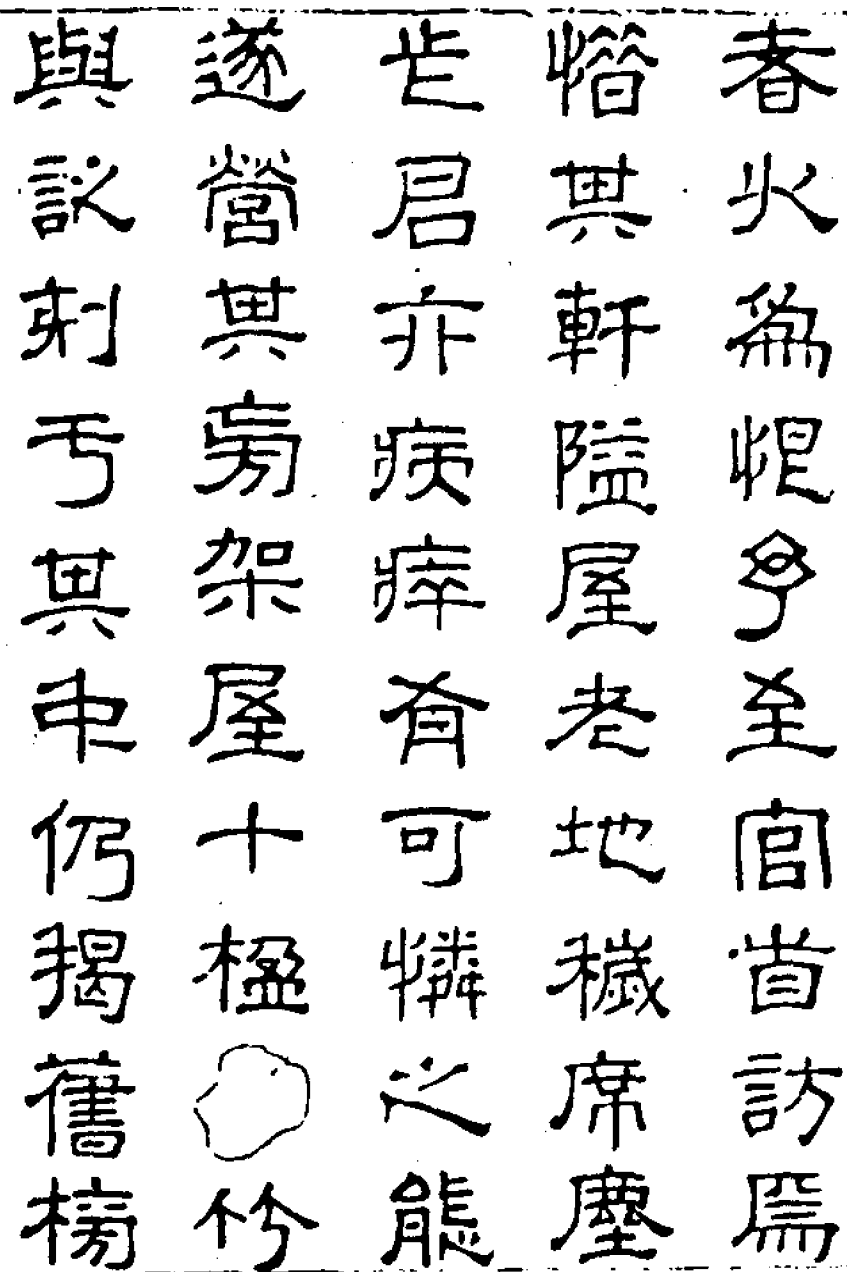 者以爲恨予至官首訪焉
惜其軒隘屋老地穢席塵
此君亦病瘁有可憐之態
遂營其旁架屋十楹竹
與刻于其中仍揭舊榜